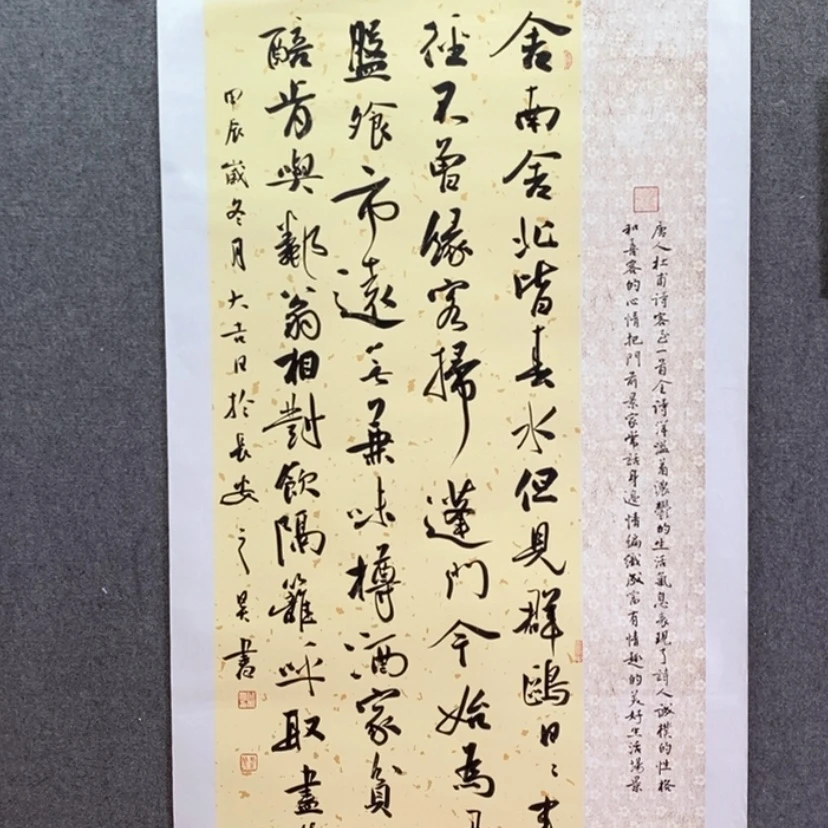 唐人杜甫詩客至一首全詩洋溢着濃鬱的生活氣息表現了詩人誠樸的性格
和喜客的心情把門前景家常話身邊情編織成富有情趣的美好生活場景
舍南舍北皆春水但見群鷗日〻来
徑不曾緣客掃蓬門今始為
盤飱市遠無兼味樽酒家貧
醅肯與鄰翁相對飲隔籬呼取盡
甲辰歲冬月大吉日於長安之昊書